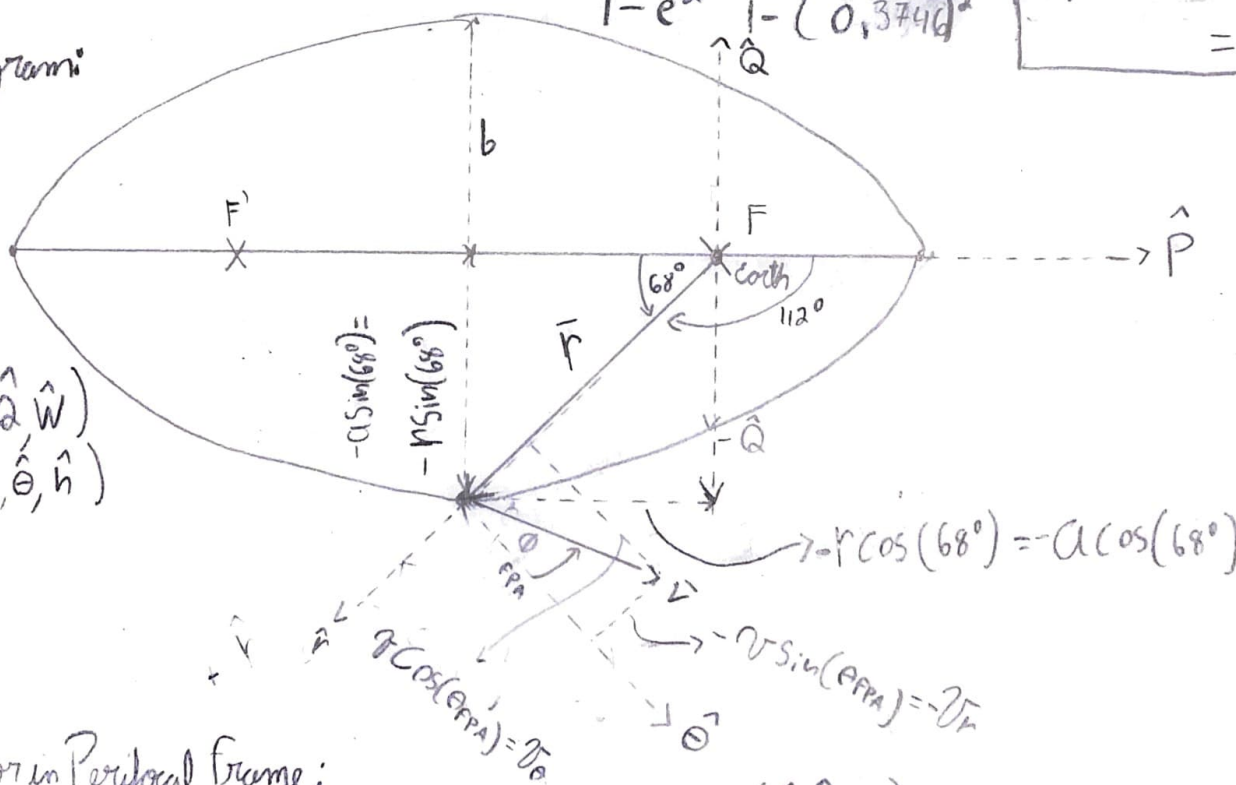 1-e² 1-(0,3746)²
=
Q̂
b
F'
F
Earth
P̂
68°
112°
r̄
-a sin(68°)=
-r sin(68°)
Q̂, Ŵ)
, θ̂, ĥ)
-Q̂
-r cos(68°) = -a cos(68°)
Ø
FPA
r̂
v cos(θFPA) = vθ
-v sin(θFPA) = -vr
θ̂
or in Perifocal frame: